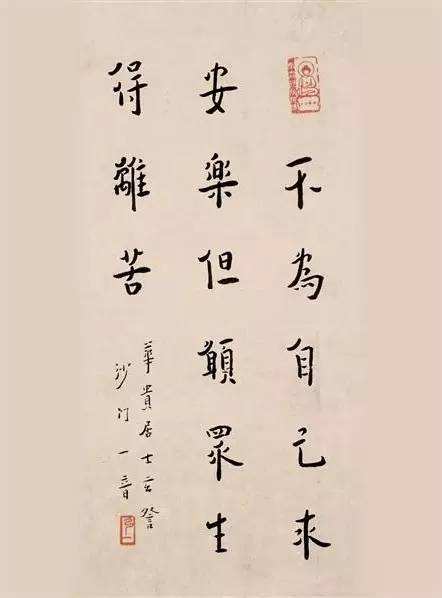 不為自己求
安樂但願眾生
得離苦
華貴居士玄詧
沙门一音